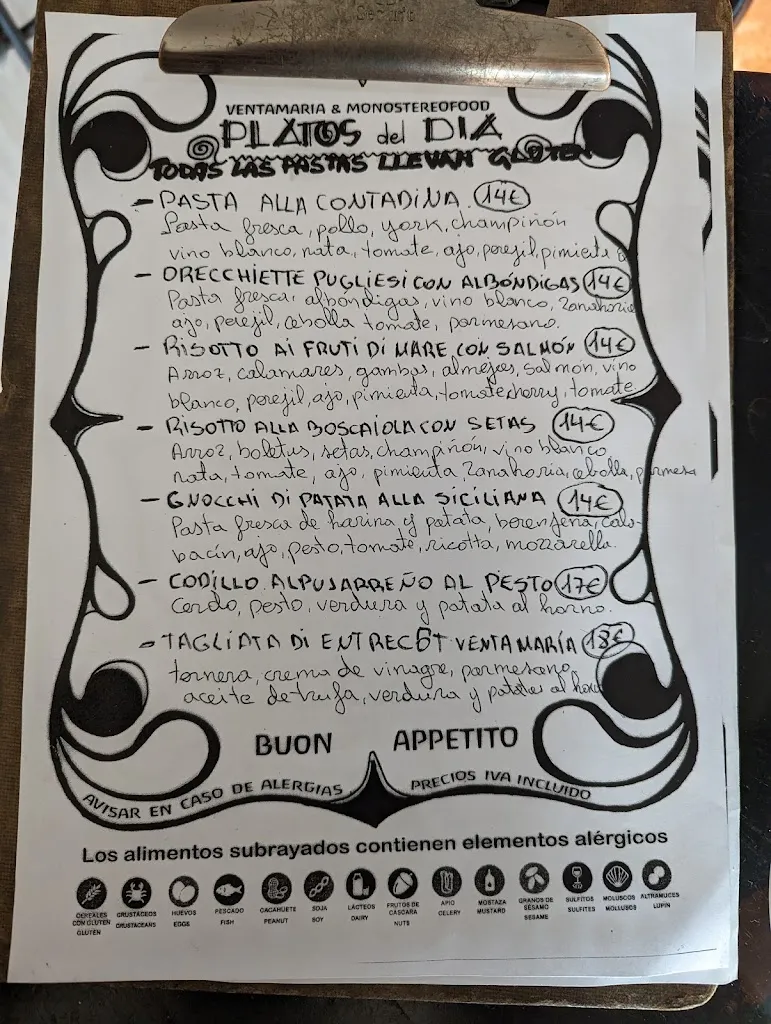 VENTAMARIA & MONOSTEREOFOOD
PLATOS del DIA
TODAS LAS PASTAS LLEVAN GLUTEN
- PASTA ALLA CONTADINA. 14€
Pasta fresca, pollo, york, champiñón
vino blanco, nata, tomate, ajo, perejil, pimienta
- ORECCHIETTE PUGLIESI CON ALBÓNDIGAS 14€
Pasta fresca, albondigas, vino blanco, Zanahoria
ajo, perejil, cebolla tomate, parmesano.
- RISOTTO AI FRUTI DI MARE CON SALMÓN 14€
Arroz, calamares, gambas, almejas, salmón, vino
blanco, perejil, ajo, pimienta, tomate cherry, tomate
- RISOTTO ALLA BOSCAIOLA CON SETAS 14€
Arroz, boletus, setas, champiñón, vino blanco,
nata, tomate, ajo, pimienta Zanahoria, cebolla, parmesa
- GNOCCHI DI PATATA ALLA SICILIANA 14€
Pasta fresca de harina y patata, berenjena, cala-
bacín, ajo, pesto, tomate, ricotta, mozzarella.
- CODILLO ALPUJARREÑO AL PESTO 17€
Cerdo, pesto, verdura y patata al horno.
- TAGLIATA DI ENTRECÔT VENTA MARÍA 18€
ternera, crema de vinagre, parmesano,
aceite de trufa, verdura y patatas al horno
BUON APPETITO
AVISAR EN CASO DE ALERGIAS PRECIOS IVA INCLUIDO
Los alimentos subrayados contienen elementos alérgicos
CEREALES CON GLUTEN GLUTEN
CRUSTÁCEOS CRUSTACEANS
HUEVOS EGGS
PESCADO FISH
CACAHUETE PEANUT
SOJA SOY
LÁCTEOS DAIRY
FRUTOS DE CÁSCARA NUTS
APIO CELERY
MOSTAZA MUSTARD
GRANOS DE SÉSAMO SESAME
SULFITOS SULFITES
MOLUSCOS MOLLUSCS
ALTRAMUCES LUPIN